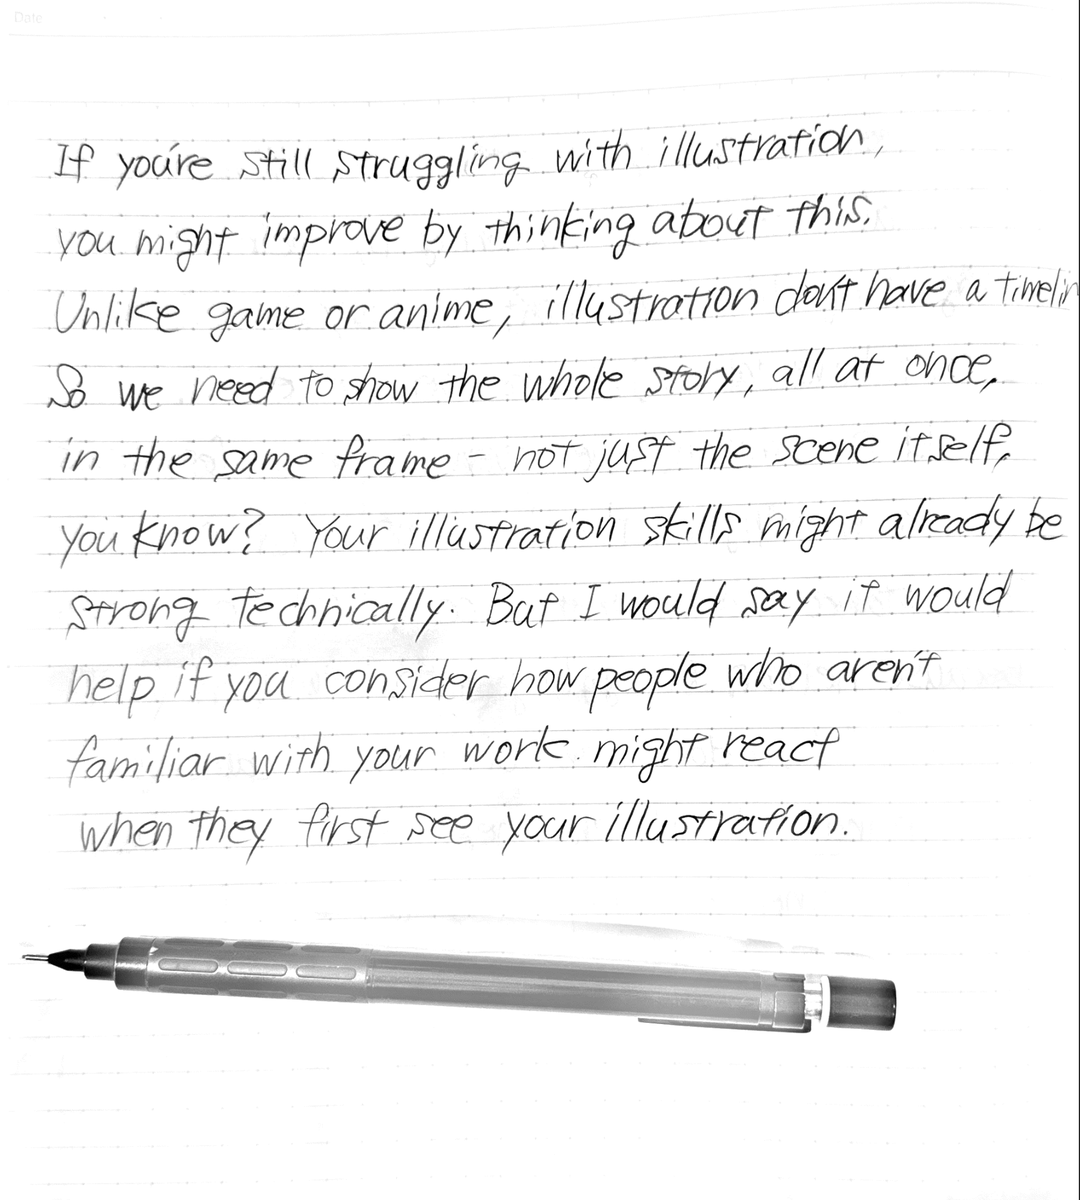 Date
If you're still struggling with illustration,
you might improve by thinking about this.
Unlike game or anime, illustration don't have a timelin
So we need to show the whole story, all at once,
in the same frame - not just the scene itself,
you know? Your illustration skills might already be
strong technically. But I would say it would
help if you consider how people who aren't
familiar with your work might react
when they first see your illustration.